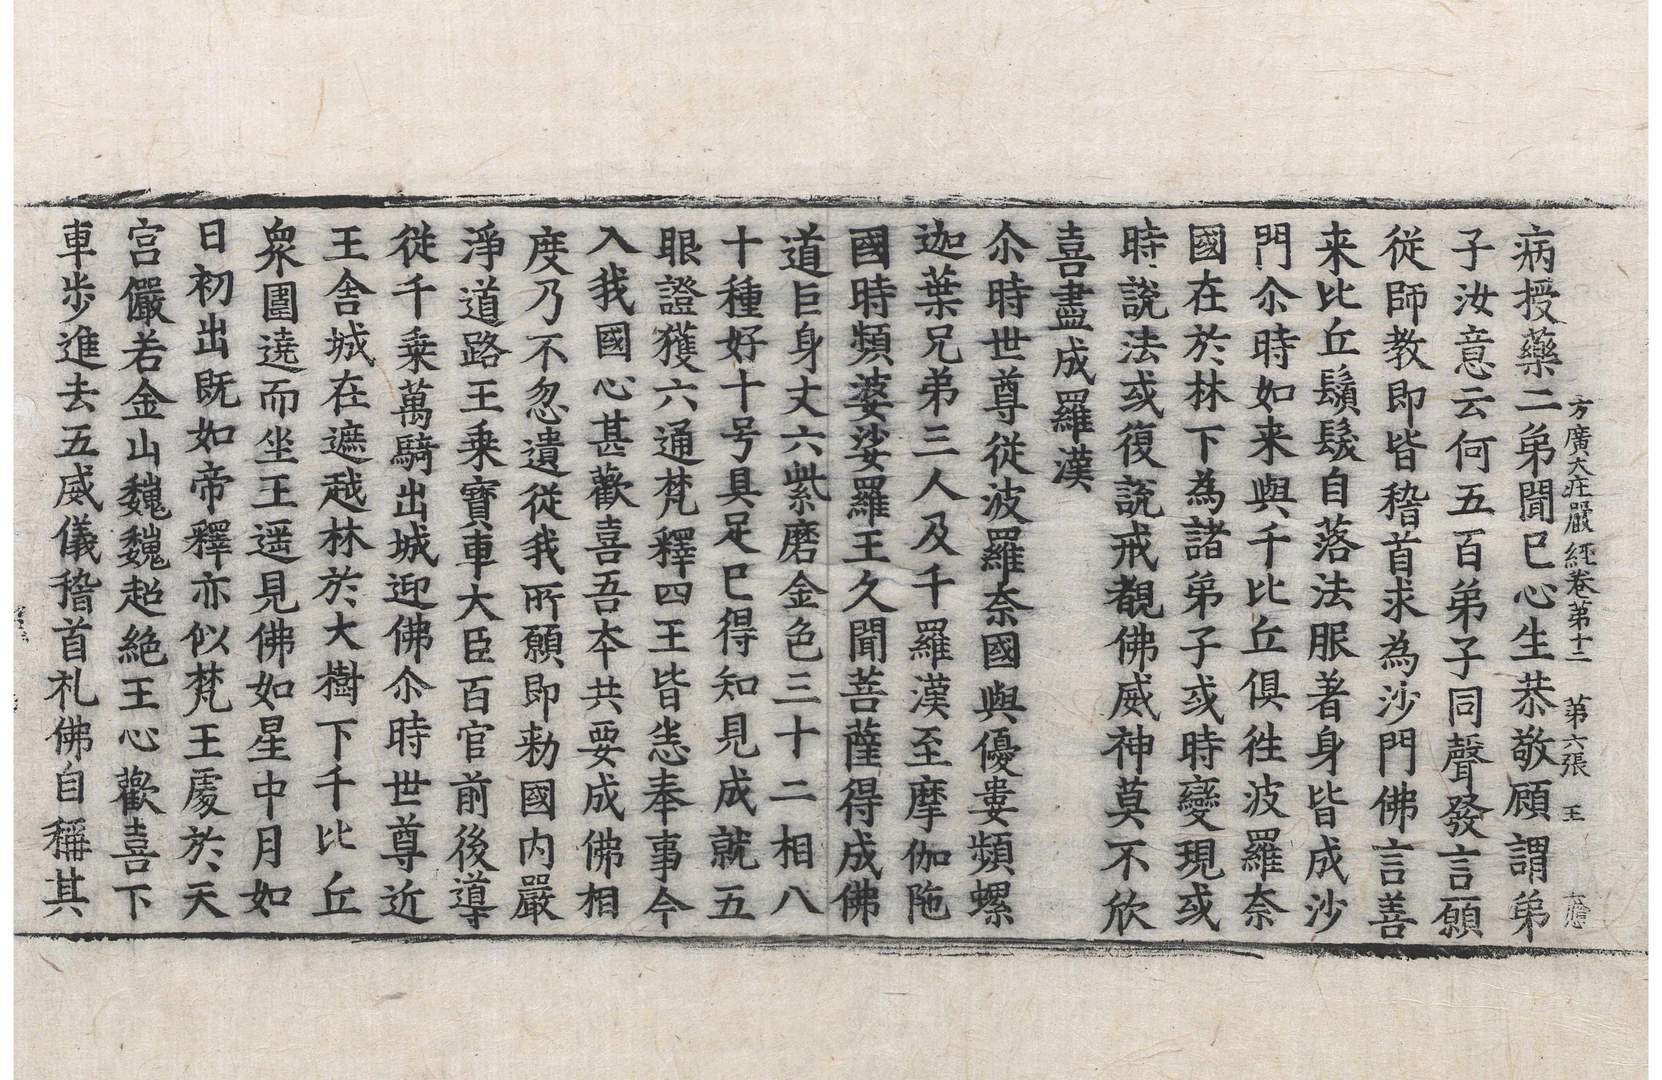 方廣大庄嚴經卷第十二 第六張 王
病授藥二弟聞已心生恭敬顧謂弟
子汝意云何五百弟子同聲發言願
從師教即皆稽首求為沙門佛言善
来比丘鬚髮自落法服著身皆成沙
門尒時如来與千比丘俱往波羅奈
國在於林下為諸弟子或時變現或
時說法或復說戒覩佛威神莫不欣
喜盡成羅漢
尒時世尊從波羅奈國與優婁頻螺
迦葉兄弟三人及千羅漢至摩伽陁
國時頻婆娑羅王久聞菩薩得成佛
道巨身丈六紫磨金色三十二相八
十種好十号具足已得知見成就五
眼證獲六通梵釋四王皆悉奉事今
入我國心甚歡喜吾本共要成佛相
度乃不忽遺從我所願即勑國内嚴
淨道路王乗寳車大臣百官前後導
從千乗萬騎出城迎佛尒時世尊近
王舍城在遮越林於大樹下千比丘
衆圍遶而坐王遥見佛如星中月如
日初出既如帝釋亦似梵王處於天
宫儼若金山巍巍超絶王心歡喜下
車步進去五威儀稽首礼佛自稱其